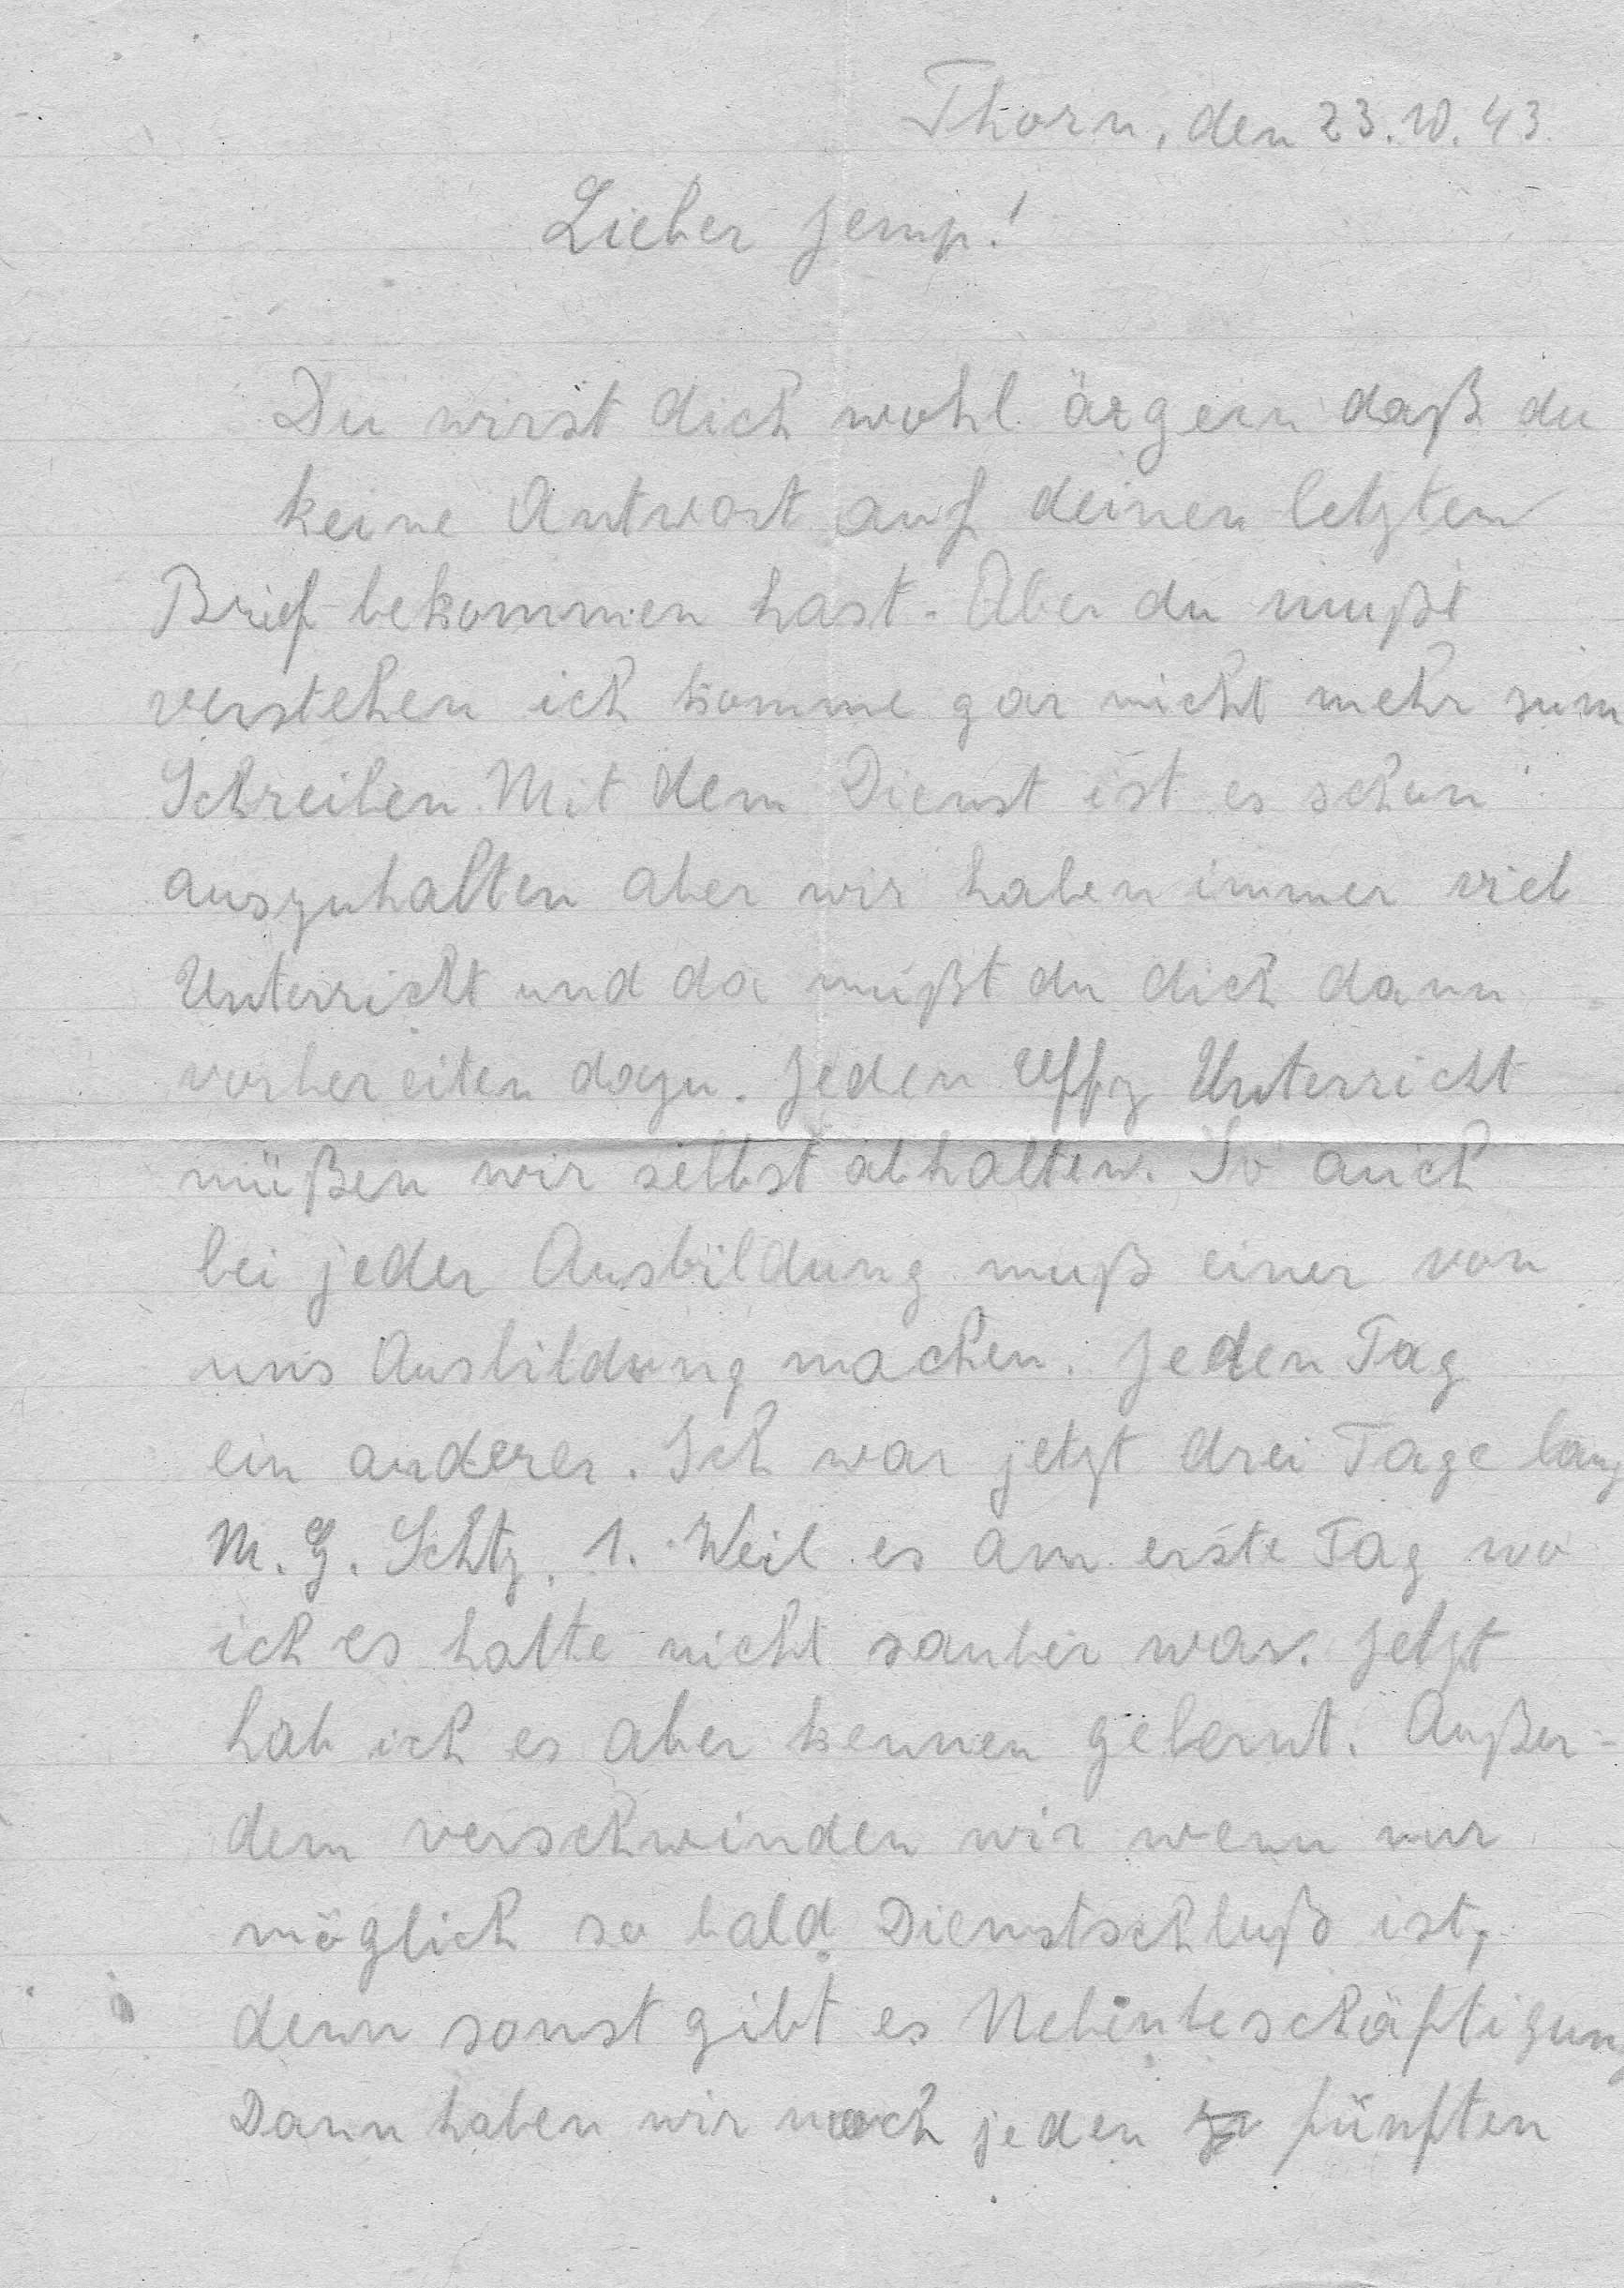 Thorn, den 23.10.43.
Lieber Jemp!
Du wirst dich wohl ärgern daß du
keine Antwort auf deinen letzten
Brief bekommen hast. Aber du mußt
verstehen ich komme gar nicht mehr zum
Schreiben. Mit dem Dienst ist es schon
auszuhalten aber wir haben immer viel
Unterricht und da mußt du dich dann
vorbereiten dazu. Jeden Uffz Unterricht
müßen wir selbst abhalten. So auch
bei jeder Ausbildung muß einer von
uns Ausbildung machen. Jeden Tag
ein anderer. Ich war jetzt drei Tage lang
M. G. Schtz. 1. Weil es am erste Tag wo
ich es hatte nicht sauber war. Jetzt
hab ich es aber kennen gelernt. Außer-
dem verschwinden wir wenn nur
möglich so bald Dienstschluß ist,
denn sonst gibt es Nebenbeschäftigung
Dann haben wir noch jeden fünften